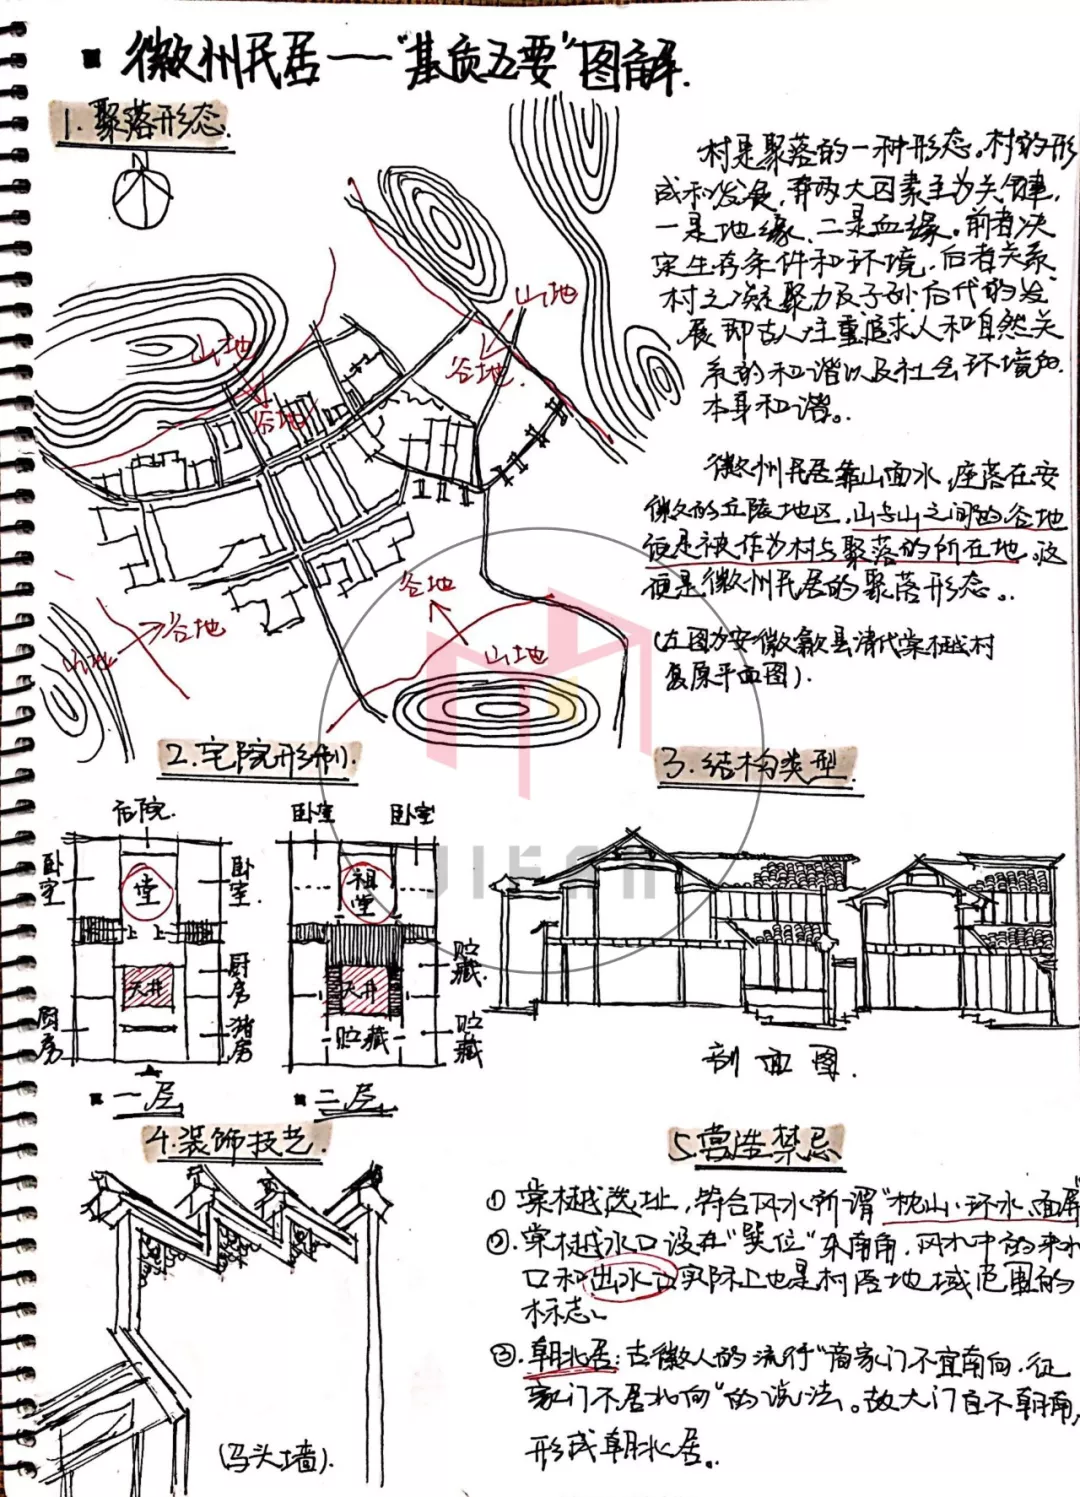 徽州民居——"基质五要"图解.
1.聚落形态.
村是聚落的一种形态。村的形
成和发展,有两大因素至为关键,
一是地缘、二是血缘。前者决
定生存条件和环境,后者关系
村之凝聚力及子孙后代的发
展即古人注重追求人和自然关
系的和谐以及社会环境的
本身和谐。
徽州民居靠山面水,座落在安
徽的丘陵地区,山与山之间的谷地
便是被作为村与聚落的所在地,这
便是徽州民居的聚落形态。
(左图为安徽歙县清代棠樾村
复原平面图).
山地
谷地
山地
谷地.
山地
谷地
谷地
山地
2.宅院形制.
后院.
卧室
堂
卧室.
上 上
天井
厨房
厨房
猪房
一层
卧室
卧室
祖堂
天井
贮藏
贮藏.
贮藏
二层
3.结构类型.
JIEAN
剖面图.
4.装饰技艺.
(马头墙).
5.营造禁忌
① 棠樾选址,符合风水所谓"枕山、环水、面屏
②.棠樾水口设在"巽位"东南角,风水中的来水
口和出水口实际上也是村落地域范围的
标志。
③.朝北居:古徽人的流行"商家门不宜南向,征
家门不居北向"的说法。故大门自不朝南,
形成朝北居。